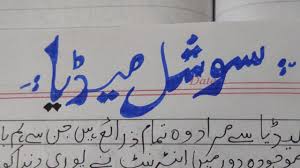 سوشل میڈیا
Date
میڈیا سے مراد وہ تمام ذرائع ہیں جن سے ہم
دور میں انٹرنٹ نے پوری دنیا